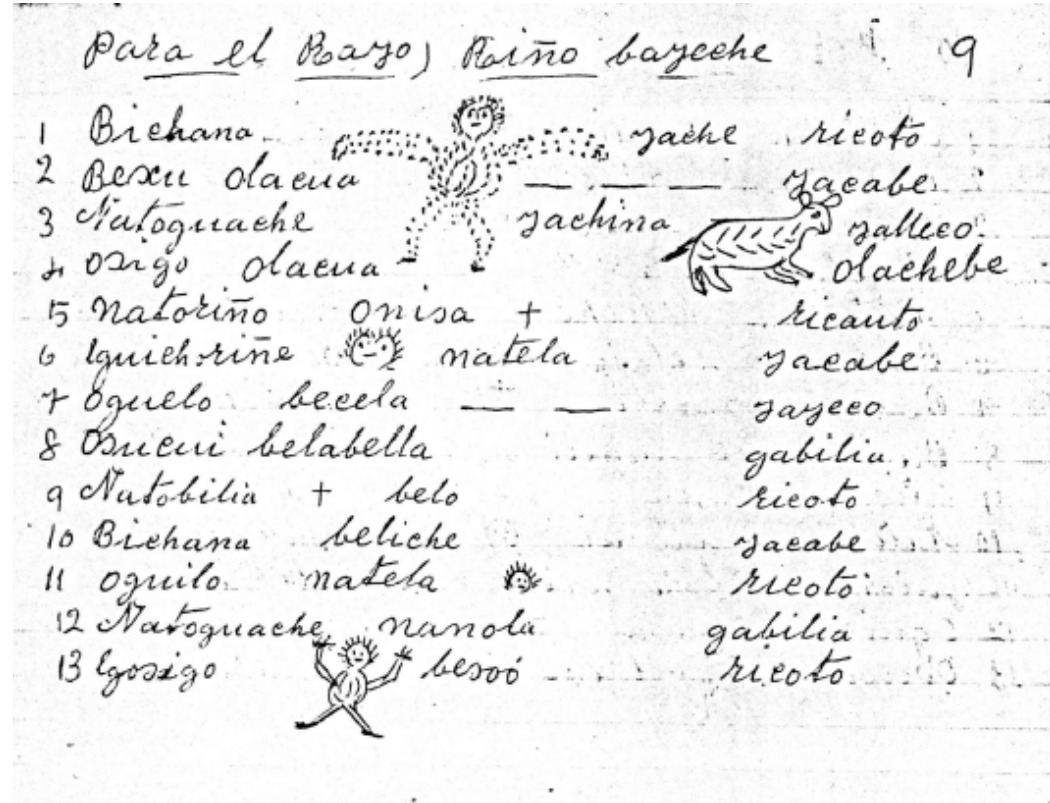 Para el Rayo) Riño bayeche 9
1 Bichana yache ricoto
2 Bexu olacua — — — yacabe
3 Natoguache yachina yalleco
4 osigo olacua — olachebe
5 natoriño onisa + ricauto
6 lguichriñe natela yacabe
7 oguelo becela — — yayeco
8 osucui belabella gabilia
9 Natobilia + belo ricoto
10 Bichana beliche yacabe
11 oguilo natela ricoto
12 Natoguache nanola gabilia
13 lgosigo besoó ricoto